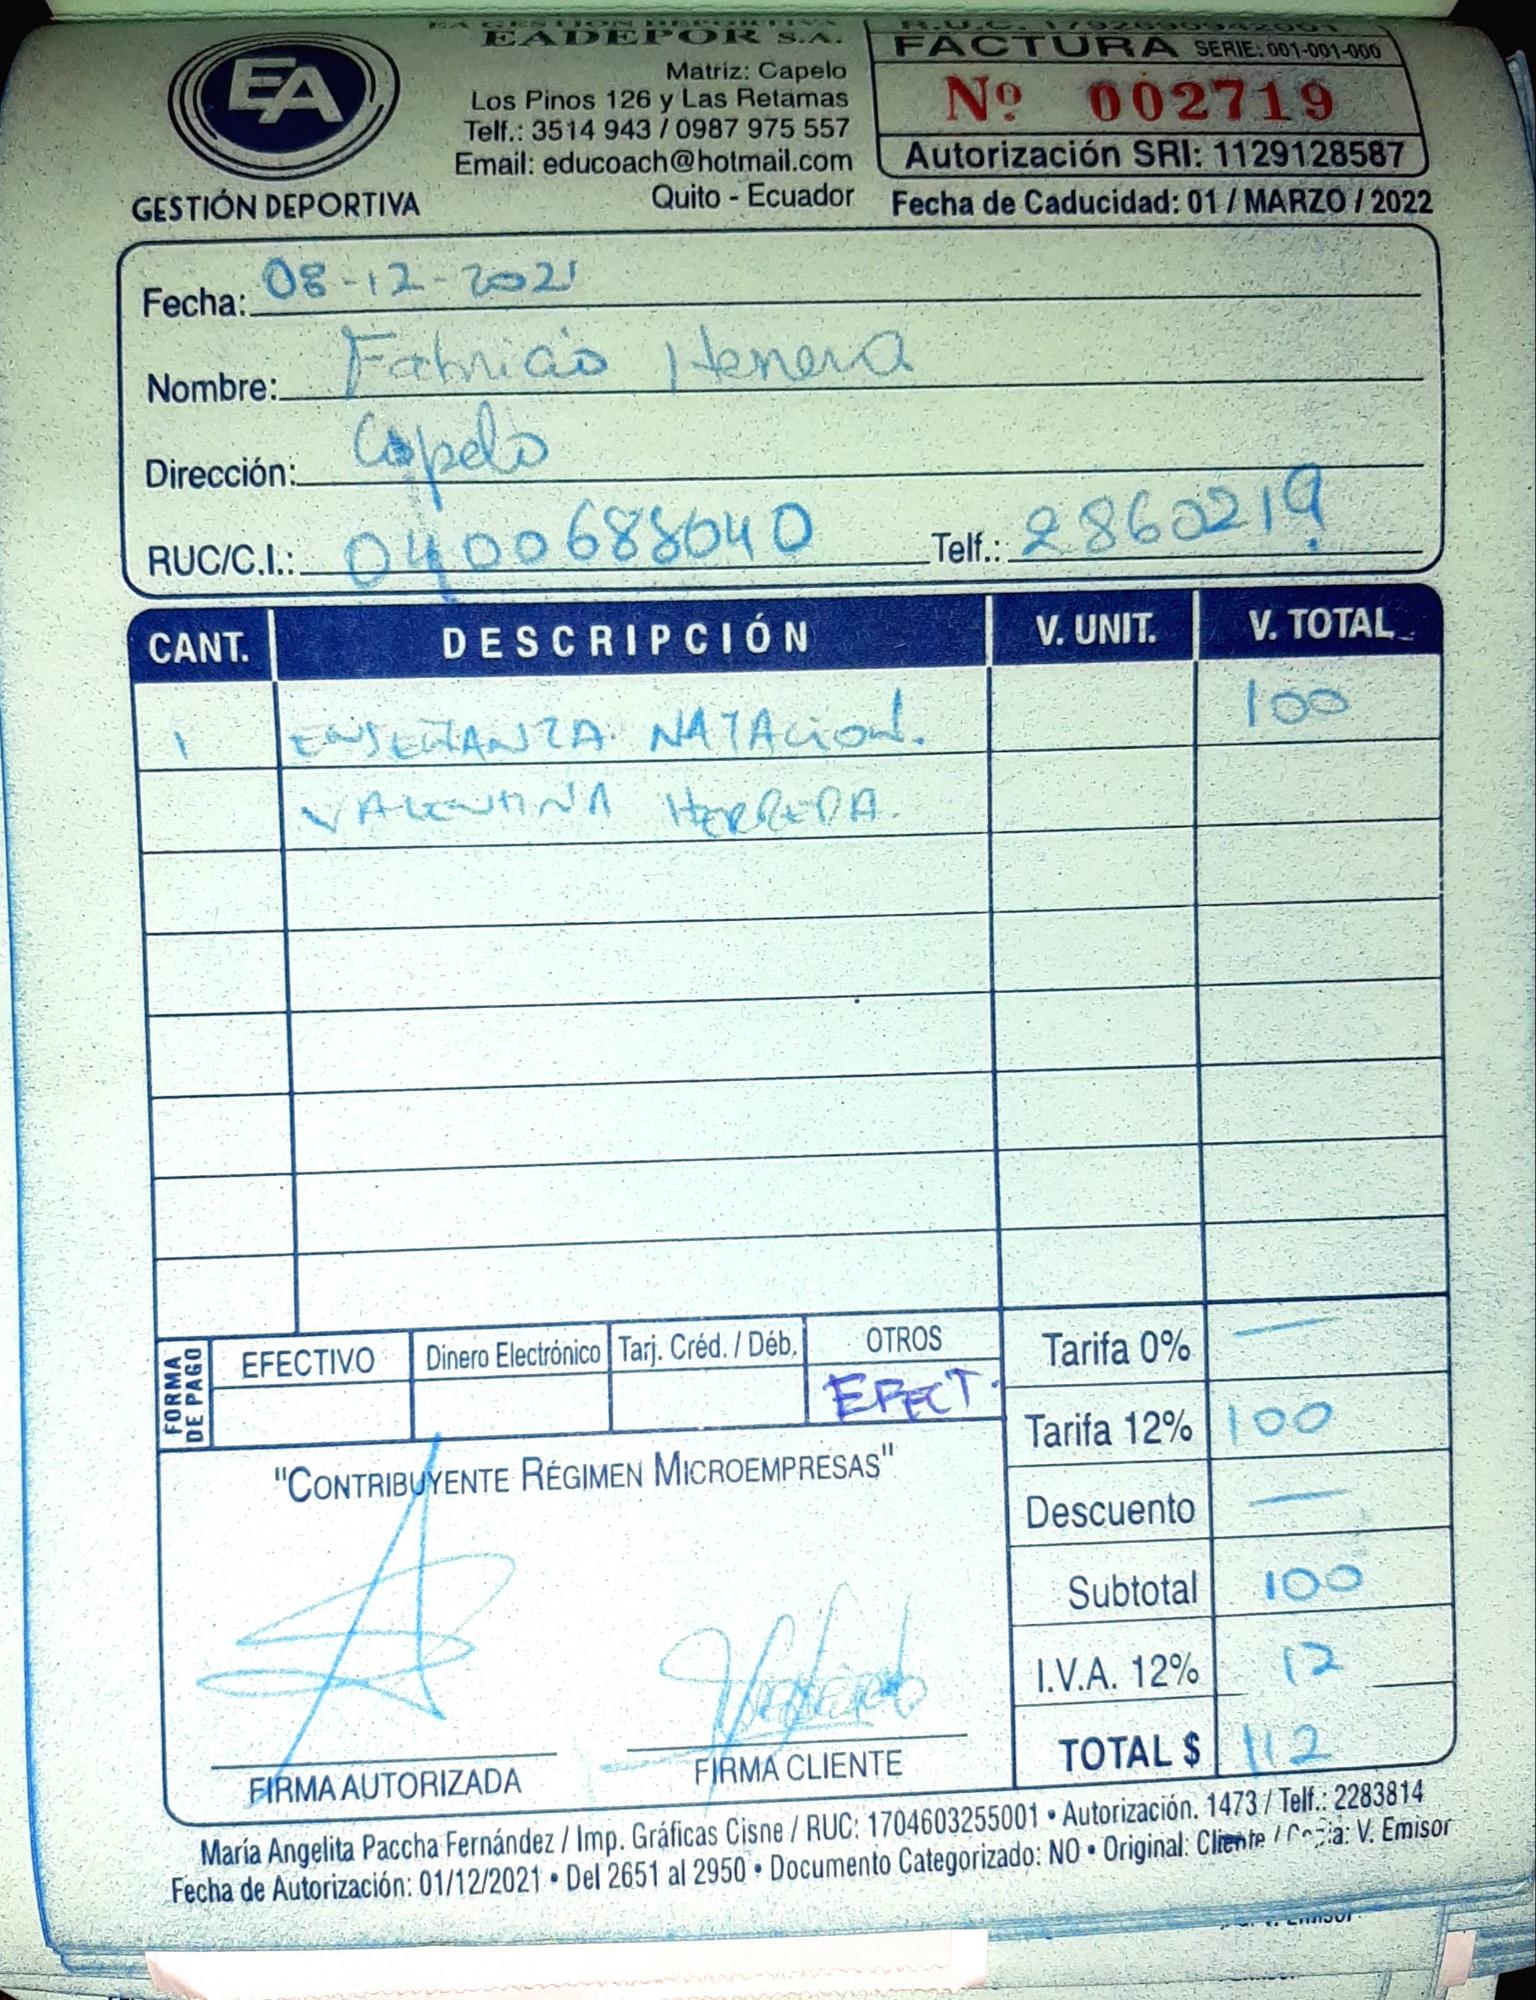 EA GESTIÓN DEPORTIVA
EADEPOR S.A.
Matriz: Capelo
Los Pinos 126 y Las Retamas
Telf.: 3514 943 / 0987 975 557
Email: educoach@hotmail.com
Quito - Ecuador
EA
GESTIÓN DEPORTIVA
R.U.C.
FACTURA SERIE: 001-001-000
Nº 002719
Autorización SRI: 1129128587
Fecha de Caducidad: 01 / MARZO / 2022
Fecha: 08-12-2021
Nombre: Fabricio Herrera
Dirección: Capelo
RUC/C.I.: 0400688040 Telf.: 2860219
CANT. DESCRIPCIÓN V. UNIT. V. TOTAL
1 ENSEÑANZA NATACION. 100
VALENTINA HERRERA.
FORMA DE PAGO EFECTIVO Dinero Electrónico Tarj. Créd. / Déb. OTROS
EFECT.
Tarifa 0% —
Tarifa 12% 100
Descuento —
Subtotal 100
I.V.A. 12% 12
TOTAL $ 112
"CONTRIBUYENTE RÉGIMEN MICROEMPRESAS"
FIRMA AUTORIZADA FIRMA CLIENTE
María Angelita Paccha Fernández / Imp. Gráficas Cisne / RUC: 1704603255001 • Autorización. 1473 / Telf.: 2283814
Fecha de Autorización: 01/12/2021 • Del 2651 al 2950 • Documento Categorizado: NO • Original: Cliente / Copia: V. Emisor